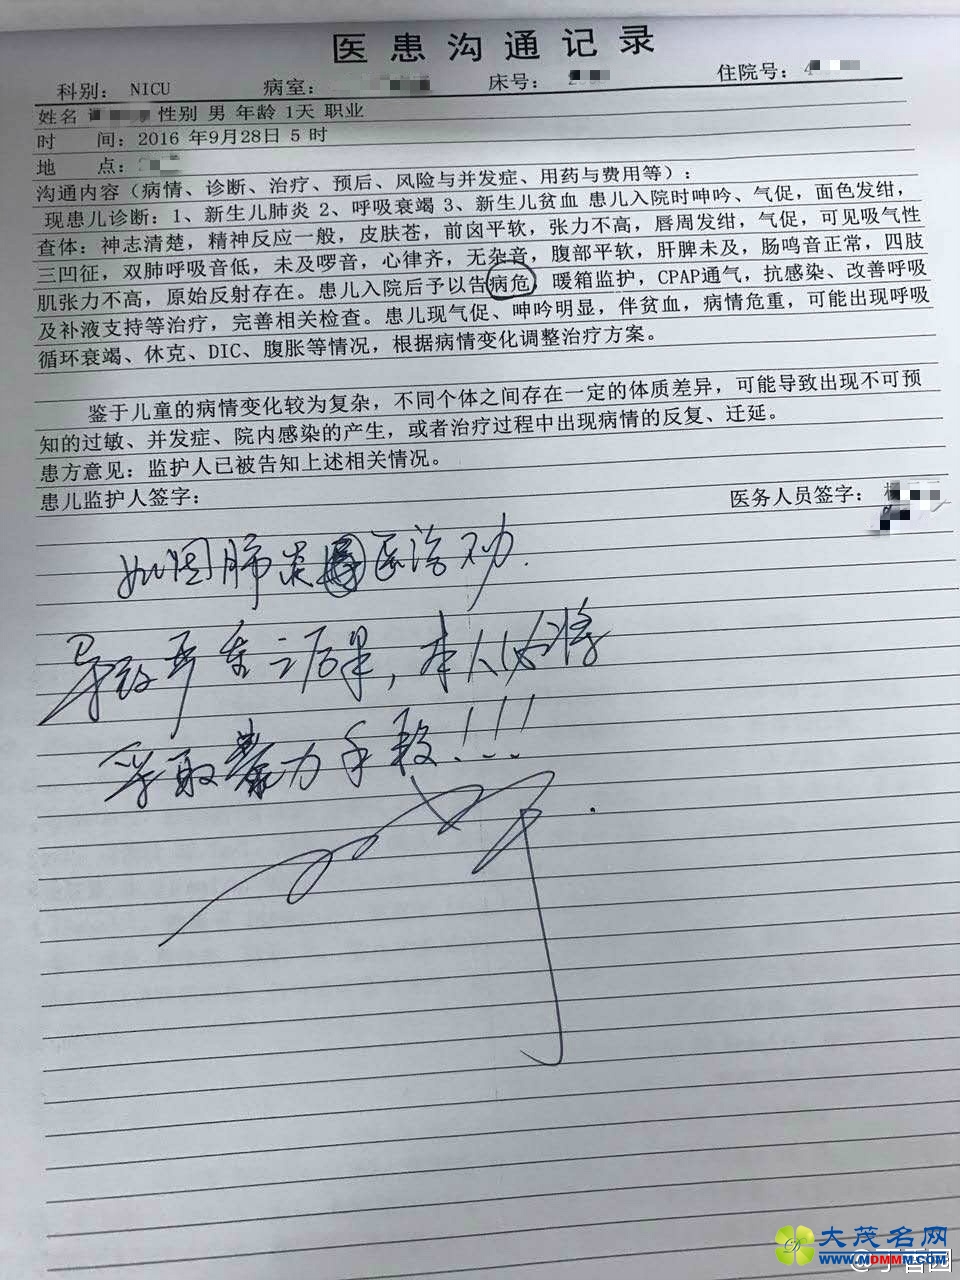 医患沟通记录
科别： NICU 病室： 床号： 住院号：4
姓名 性别 男 年龄 1天 职业
时 间：2016 年9月28日 5 时
地 点：
沟通内容（病情、诊断、治疗、预后、风险与并发症、用药与费用等）：
现患儿诊断：1、新生儿肺炎 2、呼吸衰竭 3、新生儿贫血 患儿入院时呻吟、气促，面色发绀，
查体：神志清楚，精神反应一般，皮肤苍，前囟平软，张力不高，唇周发绀，气促，可见吸气性
三凹征，双肺呼吸音低，未及啰音，心律齐，无杂音，腹部平软，肝脾未及，肠鸣音正常，四肢
肌张力不高，原始反射存在。患儿入院后予以告病危 暖箱监护，CPAP通气，抗感染、改善呼吸
及补液支持等治疗，完善相关检查。患儿现气促、呻吟明显，伴贫血，病情危重，可能出现呼吸
循环衰竭、休克、DIC、腹胀等情况，根据病情变化调整治疗方案。
鉴于儿童的病情变化较为复杂，不同个体之间存在一定的体质差异，可能导致出现不可预
知的过敏、并发症、院内感染的产生，或者治疗过程中出现病情的反复、迁延。
患方意见：监护人已被告知上述相关情况。
患儿监护人签字： 医务人员签字：
如因肺炎医治不功.
导致严重之后果，本人必将
采取暴力手段！！！
大茂名网
WWW.MDMMM.COM